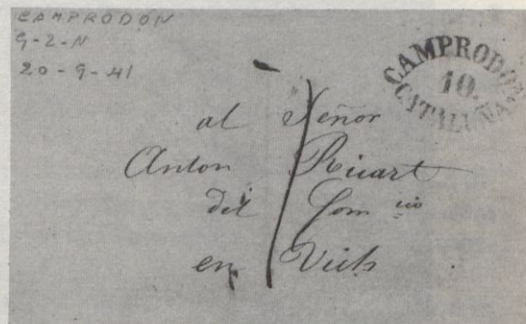 CAMPRODÓN
9-2-N
20-9-41
CAMPRODON
10.
CATALUÑA.
al Señor
Anton Ricart
del Com cio
en Vich